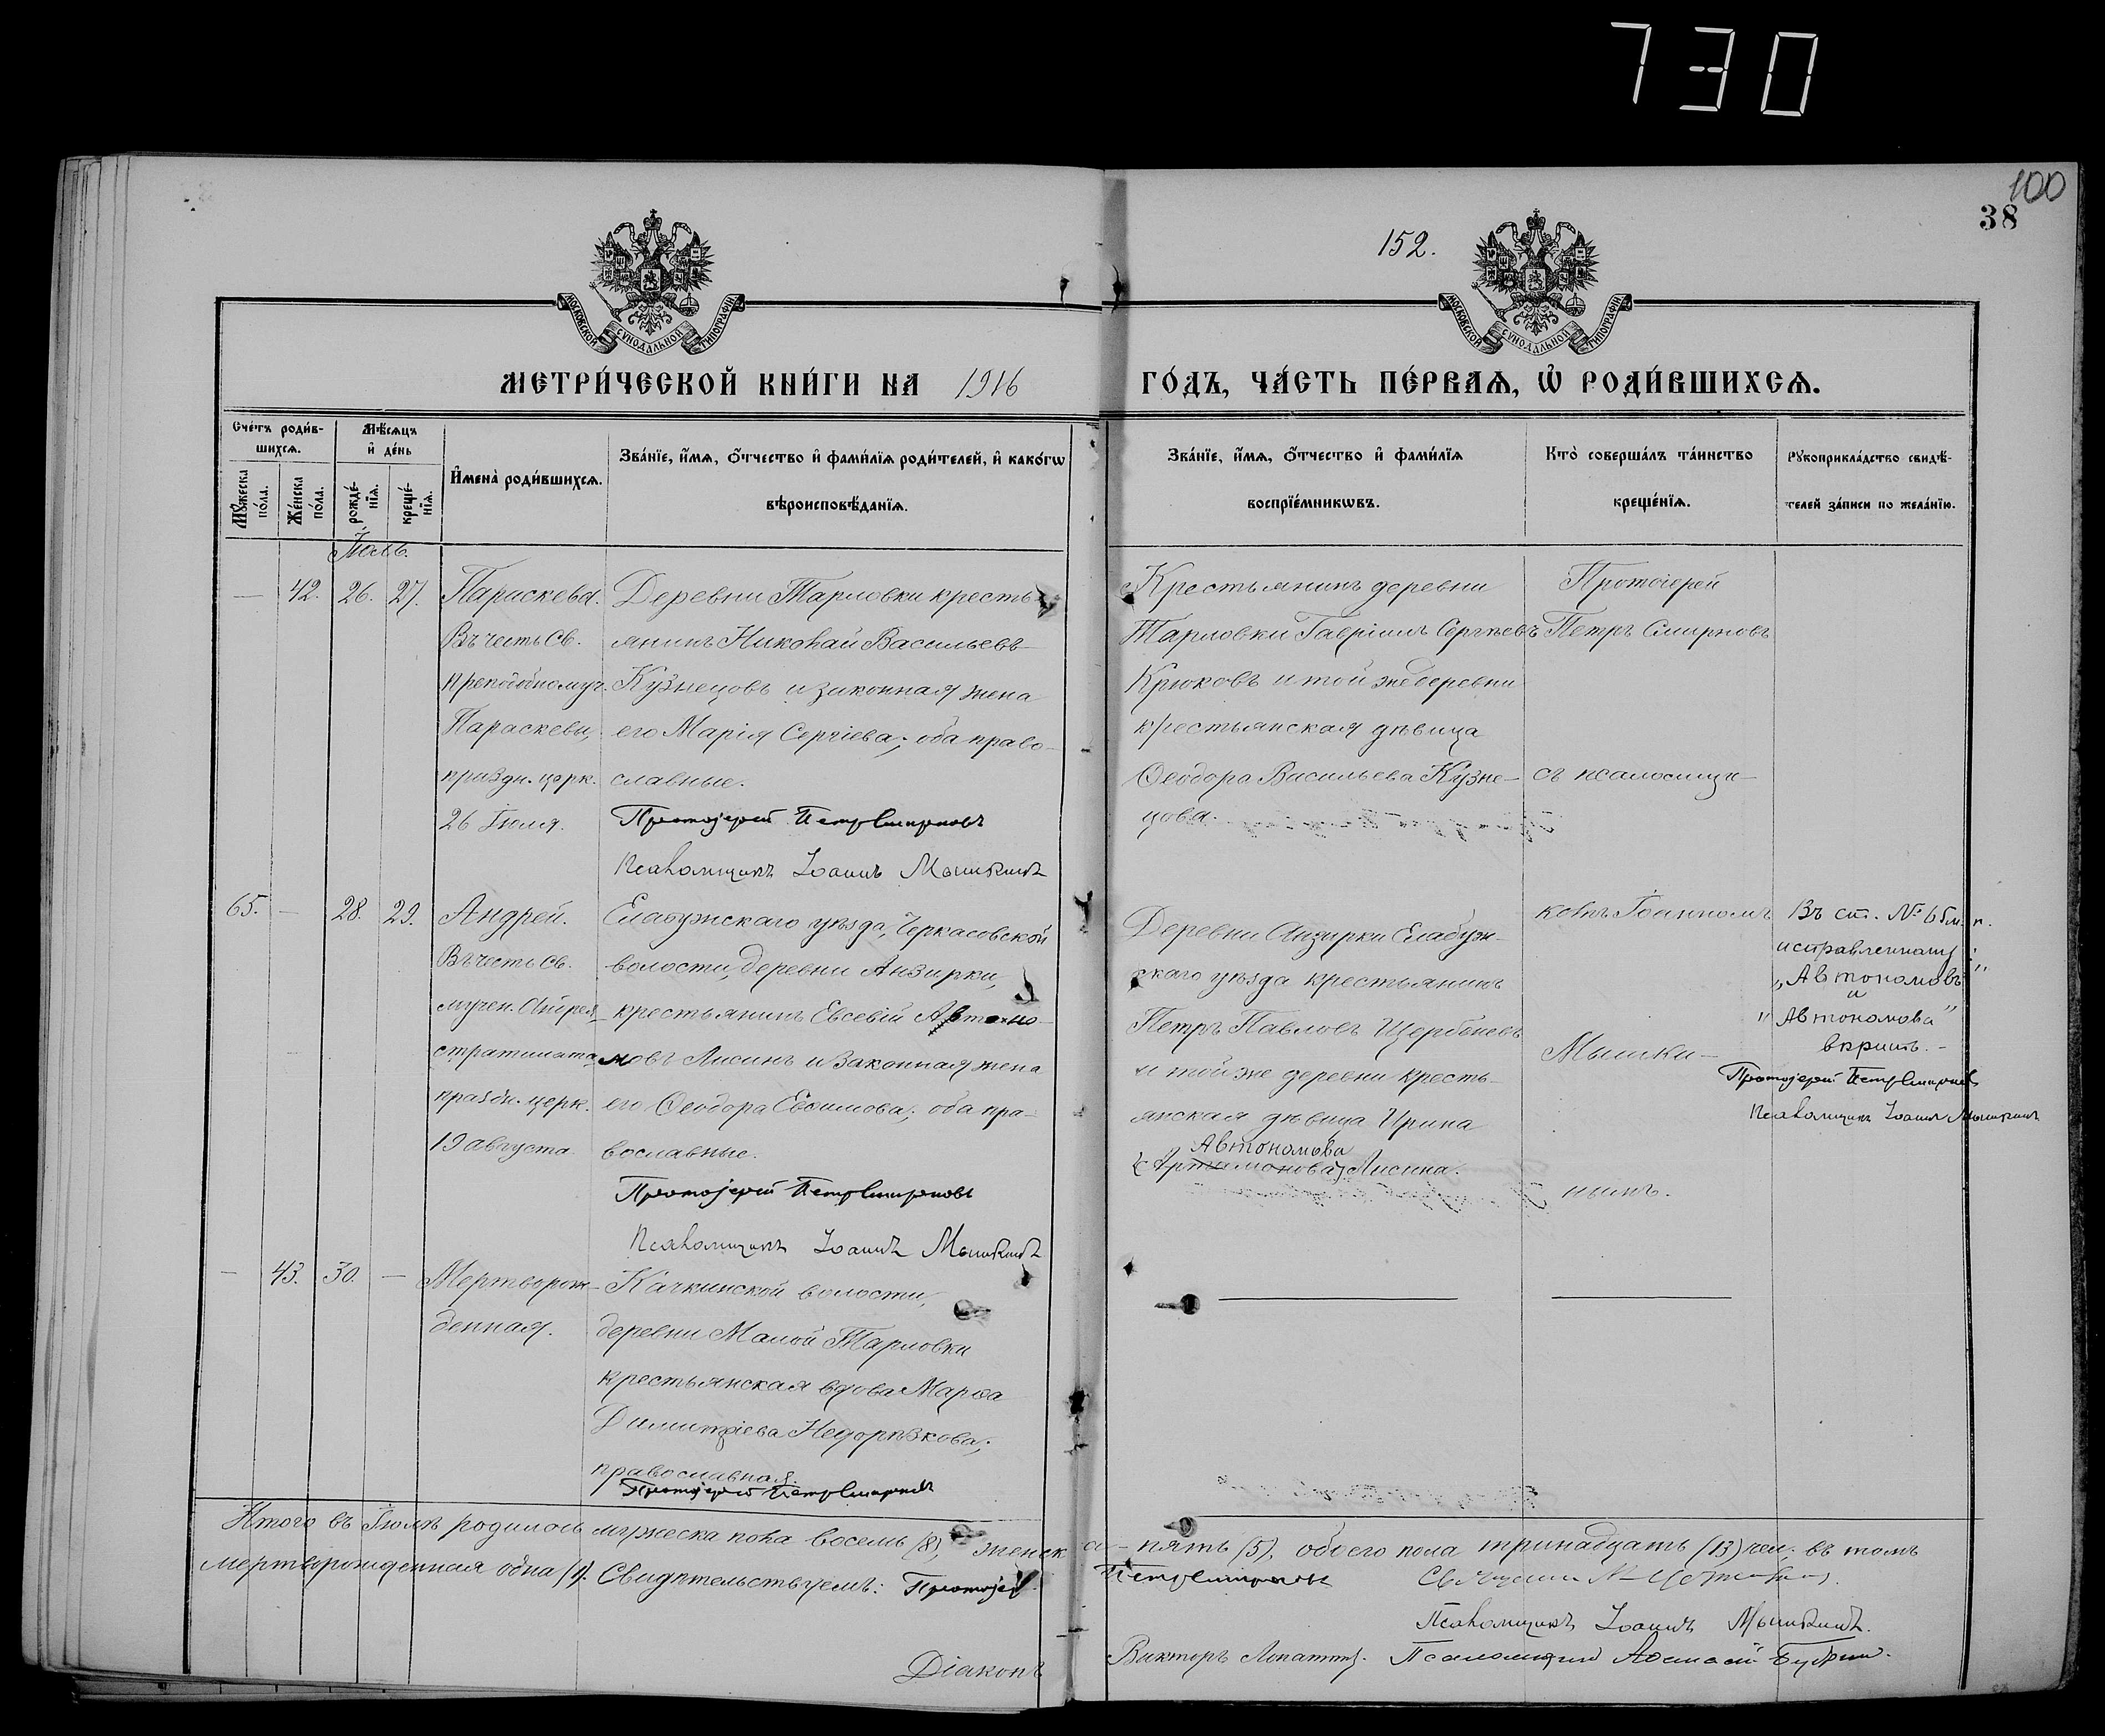 730
100
38
152.
МОСКОВСКОЙ СѴНОДАЛЬНОЙ ТИПОГРАФІИ
МОСКОВСКОЙ СѴНОДАЛЬНОЙ ТИПОГРАФІИ
МЕТРИ́ЧЕСКОЙ КНИ́ГИ НА 1916 ГО́ДЪ, ЧА́СТЬ ПЕ́РВАѦ, Ѽ РОДИ́ВШИХСѦ.
Сче́тъ роди́в-
шихсѧ.
Мꙋ́жеска по́ла.
Же́нска по́ла.
Мѣ́сѧцъ
и҆ де́нь
рожде́-
нїѧ.
креще́-
нїѧ.
И҆мена̀ роди́вшихсѧ.
Зва́нїе, и҆́мѧ, ѻ҆́тчество и҆ фами́лїѧ роди́телей, и҆ како́гѡ
вѣроисповѣ́данїѧ.
Зва́нїе, и҆́мѧ, ѻ҆́тчество и҆ фами́лїѧ
воспрїе́мникѡвъ.
Кто̀ соверша́лъ та́инство
креще́нїѧ.
Рꙋкоприкла́дство свидѣ́-
телей за́писи по жела́нїю.
Іюль.
— 42. 26. 27.
Параскева.
Въ честь Св.
преподобномуч.
Параскевы,
праздн. церк.
26 Іюля.
Деревни Тарловки кресть-
янинъ Николай Васильевъ
Кузнецовъ и законная жена
его Марія Сергіева; оба право-
славные.
Протоіерей Петръ Смирновъ
Псаломщикъ Іоаннъ Мышкинъ
Крестьянинъ деревни
Тарловки Гавріилъ Сергѣевъ
Крюковъ и той же деревни
крестьянская дѣвица
Ѳеодора Васильева Кузне-
цова.
Протоіерей
Петръ Смирновъ
съ псаломщи-
65. — 28. 29.
Андрей.
Въ честь Св.
мучен. Андрея
стратилата
праздн. церк.
19 августа.
Елабужскаго уѣзда, Черкасовской
волости, деревни Анзирки,
крестьянинъ Евсевій Автоно-
мовъ Лисинъ и законная жена
его Ѳеодора Евѳимова; оба пра-
вославные.
Протоіерей Петръ Смирновъ
Псаломщикъ Іоаннъ Мышкинъ
Деревни Анзирки Елабуж-
скаго уѣзда крестьянинъ
Петръ Павловъ Щербеневъ
и той же деревни кресть-
янская дѣвица Ирина
Автономова
(Артамонова) Лисина.
комъ Іоанномъ
Мышки-
нымъ.
Въ ст. № 65 м. п.
исправленному:
„Автономовъ"
и
"Автономова"
вѣрить. -
Протоіерей Петръ Смирновъ
Псаломщикъ Іоаннъ Мышкинъ
— 43. 30. —
Мертворож-
денная.
Качкинской волости,
деревни Малой Тарловки
крестьянская вдова Марѳа
Димитріева Недорѣзкова;
православная.
Протоіерей Петръ Смирновъ
Итого въ Іюлѣ родилось мужеска пола восемь (8), женска — пять (5), обоего пола тринадцать (13) чел., въ томъ
мертворожденная одна (1). Свидѣтельствуемъ: Протоіер. Петръ Смирновъ
Псаломщикъ Іоаннъ Мышкинъ.
Діаконъ Викторъ Лопатинъ. Псаломщикъ